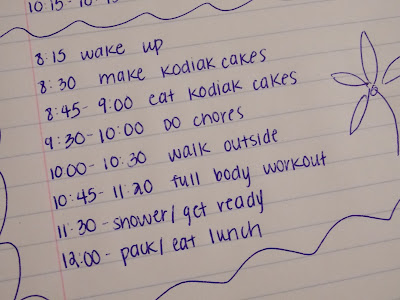 10:15-10:
8:15 wake up
8:30 make kodiak cakes
8:45-9:00 eat kodiak cakes
9:30-10:00 DO chores
10:00-10:30 walk outside
10:45-11:20 full body workout
11:30-shower/get ready
12:00-pack/eat lunch